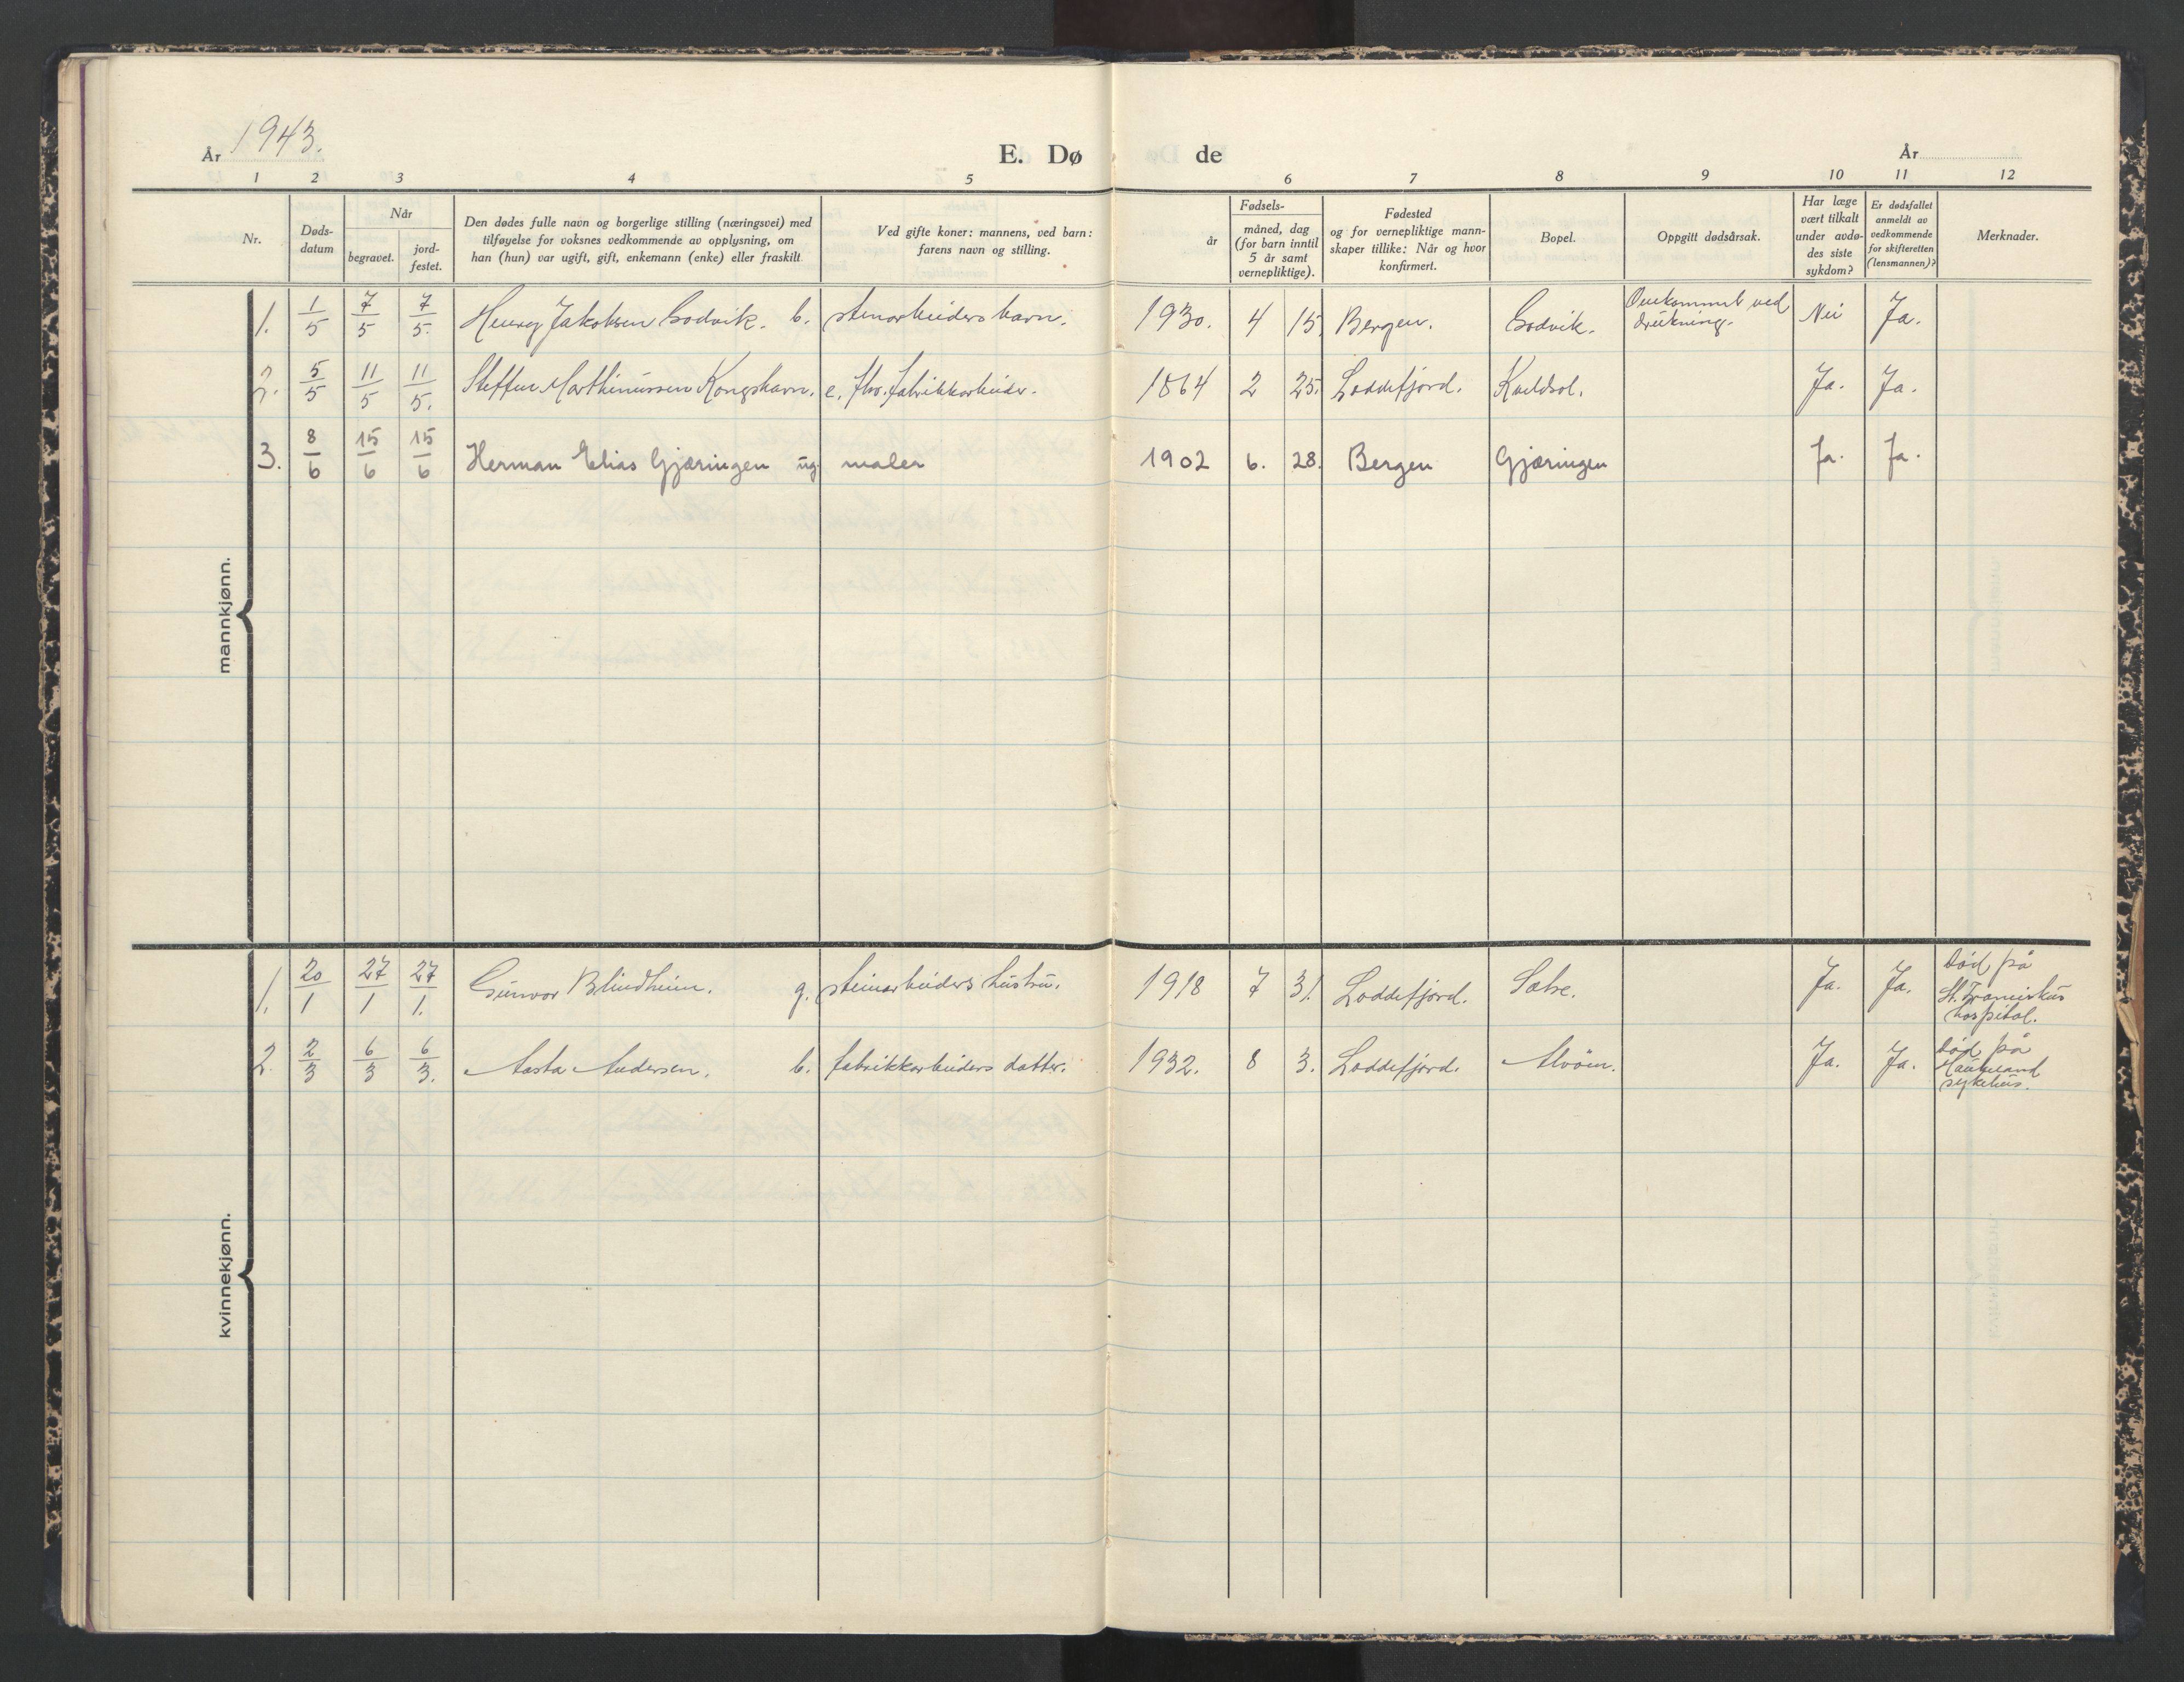 År 1943.
E. Dø de
År
1 2 3 4 5 6 7 8 9 10 11 12
Nr.
Døds-
datum
Når
begravet.
jord-
festet.
Den dødes fulle navn og borgerlige stilling (næringsvei) med
tilføyelse for voksnes vedkommende av opplysning, om
han (hun) var ugift, gift, enkemann (enke) eller fraskilt.
Ved gifte koner: mannens, ved barn:
farens navn og stilling.
Fødsels-
år
måned, dag
(for barn inntil
5 år samt
vernepliktige).
Fødested
og for vernepliktige mann-
skaper tillike: Når og hvor
konfirmert.
Bopel.
Oppgitt dødsårsak.
Har læge
vært tilkalt
under avdø-
des siste
sykdom?
Er dødsfallet
anmeldt av
vedkommende
for skifteretten
(lensmannen)?
Merknader.
mannkjønn.
1. 1/5 7/5 7/5. Henry Jakobsen Godvik. b. stenarbeiders barn. 1930. 4 15. Bergen. Godvik. Omkommet ved
drukning. Nei Ja.
2. 5/5 11/5 11/5. Steffen Marthinussen Kongshavn. e. fhv. fabrikkarbeider. 1864 2 25. Loddefjord. Kveldsol. Ja. Ja.
3. 8/6 15/6 15/6 Herman Elias Gjæringen ug. maler 1902 6. 28. Bergen Gjæringen Ja. Ja.
kvinnekjønn.
1. 20/1 27/1 27/1. Gunvor Blindheim. g. steinarbeiders hustru. 1918 7 31. Loddefjord. Sætre. Ja. Ja. Død på
St. Franciskus
hospital.
2. 2/3 6/3 6/3. Aasta Andersen. b. fabrikkarbeiders datter. 1932. 8 3. Loddefjord. Alvøen. Ja. Ja. Død på
Haukeland
sykehus.